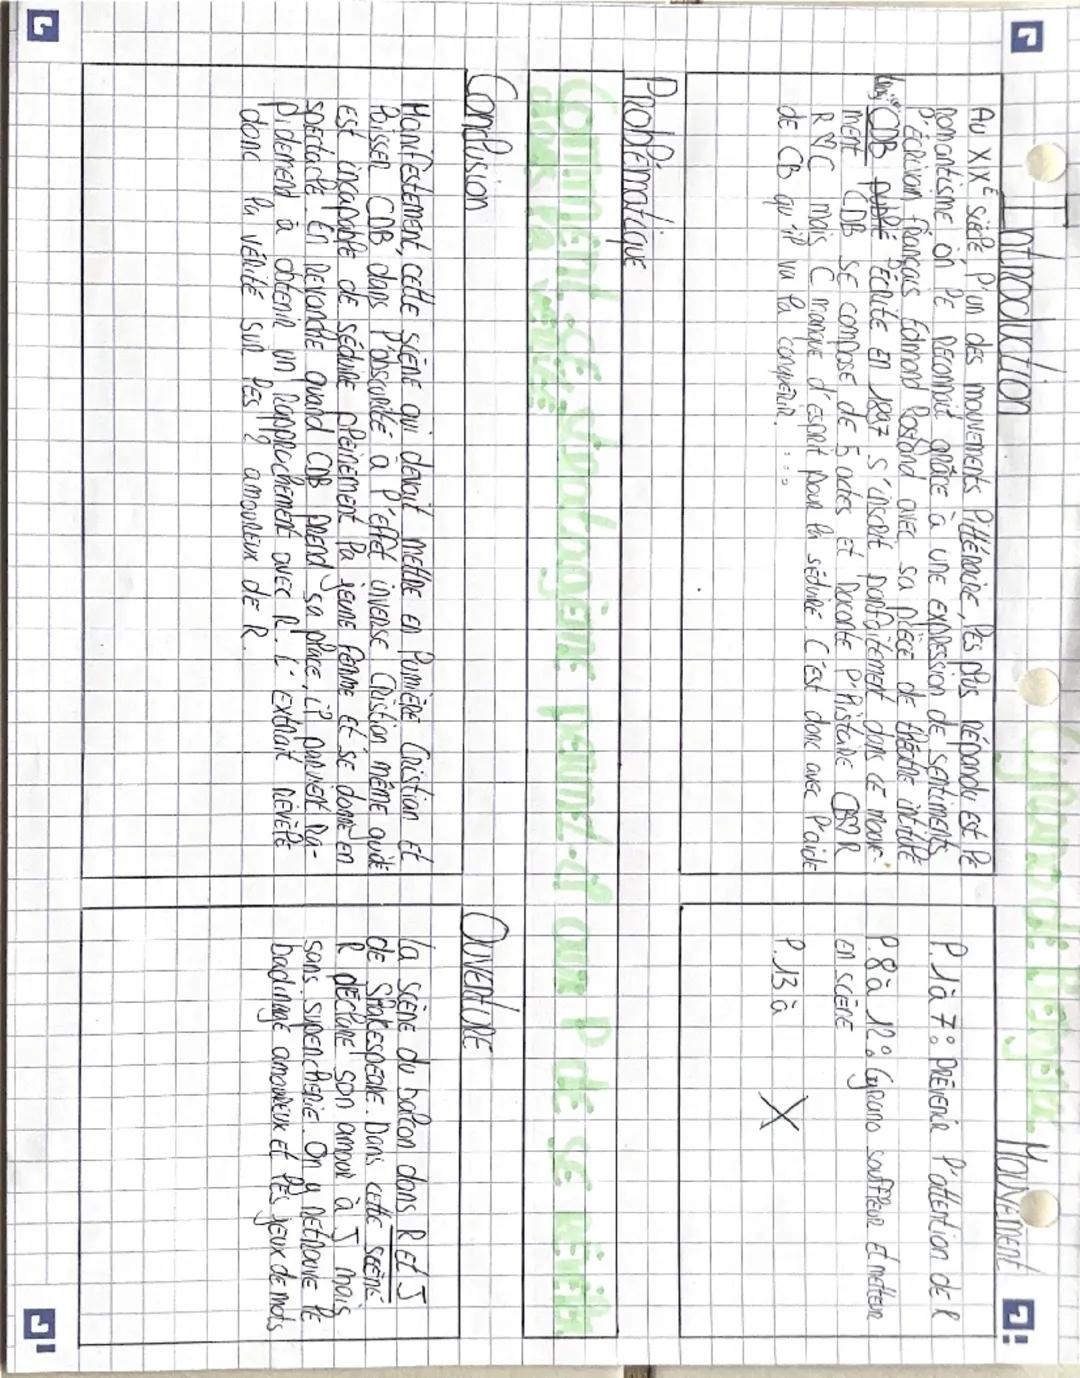 Cyrano de Bergerac
Introduction
AU XIXE siècle l'un des mouvements littéraire, les plus répandu est le
romantisme on le reconnait grâce à une expression de sentiments
l'écrivain français Edmond Rostand avec sa pièce de théâtre intitulé
CDB publié l'écrite en 1897 s'inscrit parfaitement dans ce mouve-
ment CDB se compose de 5 actes et raconte l'histoire CB♡R
R♡C mais C manque d'esprit pour la séduire C'est donc avec l'aide
de CB qu'il va la conquérir....
Mouvement
P.1à7: prévenir l'attention de R
P.8à 12: Cyrano souffleur et metteur
en scène
P.13à X
Problématique
Comment ce stratagème permet-il aux P de se révéler
Conclusion
Manifestement, cette scène qui devait mettre en lumière Cristian et
laisser CDB dans l'obscurité a l'effet inverse Cristian même guidé
est incapable de séduire pleinement la jeune femme et se donne en
spectacle. En revanche quand CDB prend sa place, il parvient ra-
pidement à obtenir un rapprochement avec R. L'extrait révèle
donc la vérité sur les ?? amoureux de R.
Ouverture
La scène du balcon dans R et J
de Shakespeare. Dans cette scène
R déclare son amour à J mais
sans supercherie. On y retrouve le
badinage amoureux et les jeux de mots